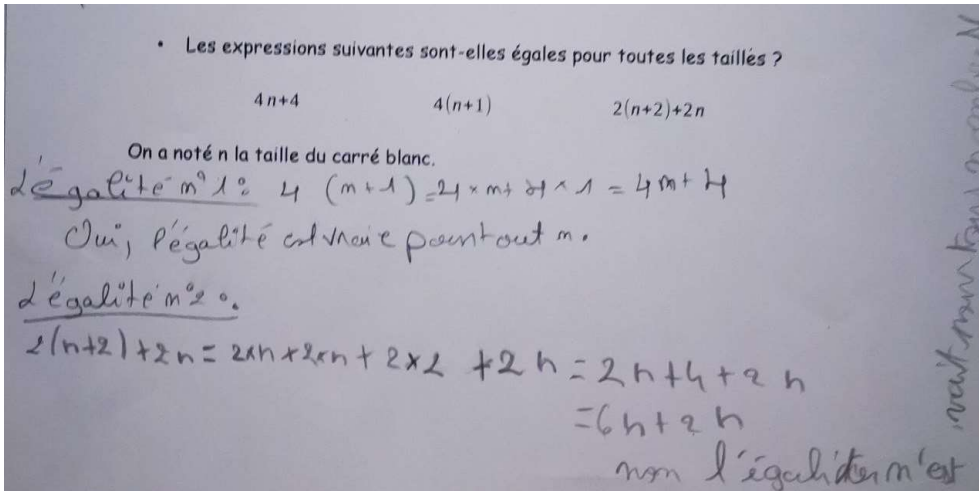 • Les expressions suivantes sont-elles égales pour toutes les tailles ?
4n+4 4(n+1) 2(n+2)+2n
On a noté n la taille du carré blanc.
L'égalité n°1: 4 (n+1) = 4×n+4×1 = 4n+4
Oui, l'égalité est vraie pour tout n.
L'égalité n°2:
2(n+2)+2n = 2×n+2×n+2×2 +2n = 2n+4+2n
=6n+2n
non l'égalité n'est